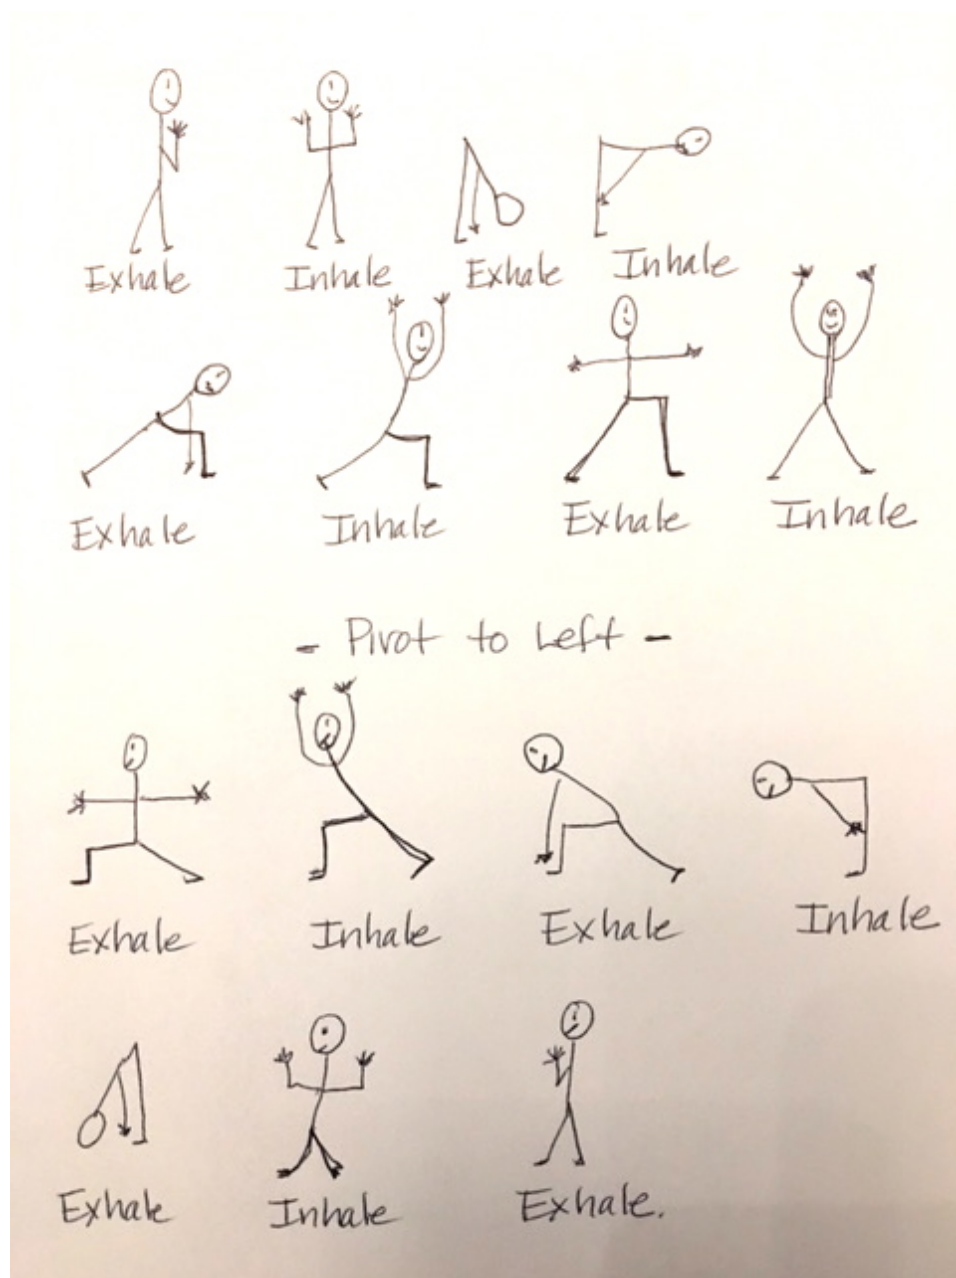 Exhale Inhale Exhale Inhale
Exhale Inhale Exhale Inhale
- Pivot to Left -
Exhale Inhale Exhale Inhale
Exhale Inhale Exhale.